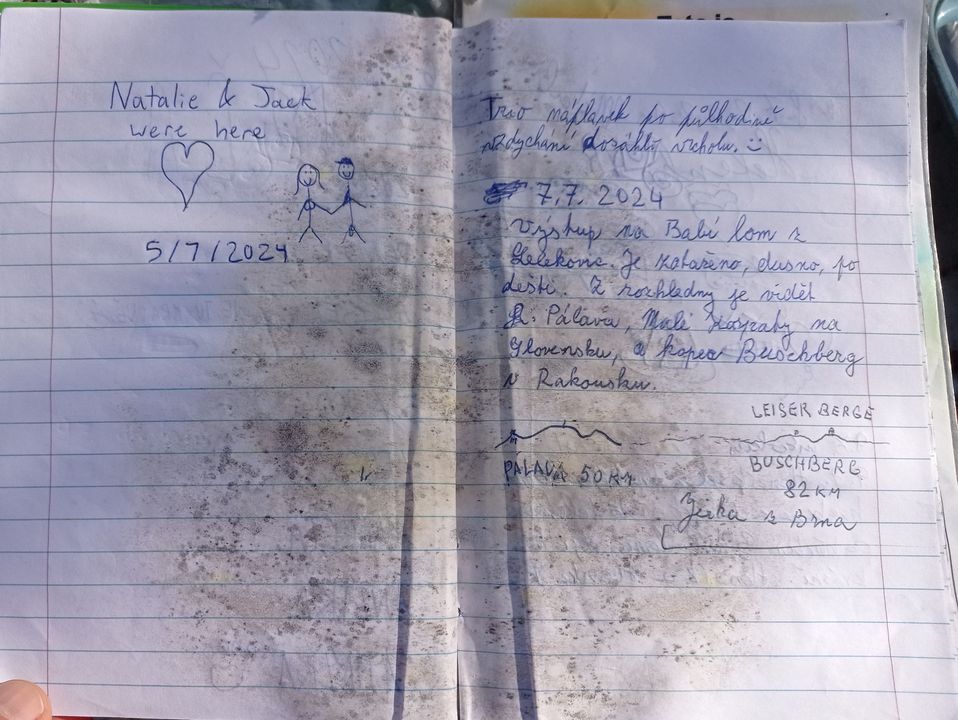 Natalie & Jack
were here
5/7/2024
Trio náplavek po půlhodině
vzdychání dosáhlo vrcholu.
7.7. 2024
Výstup na Babí lom z
Lelekovic. Je zataženo, dusno, po
dešti. Z rozhledny je vidět
Pálava, Malé Karpaty na
Slovensku, a kopec Buschberg
v Rakousku.
LEISER BERGE
PÁLAVA 50 KM
BUSCHBERG
82 KM
Jirka z Brna